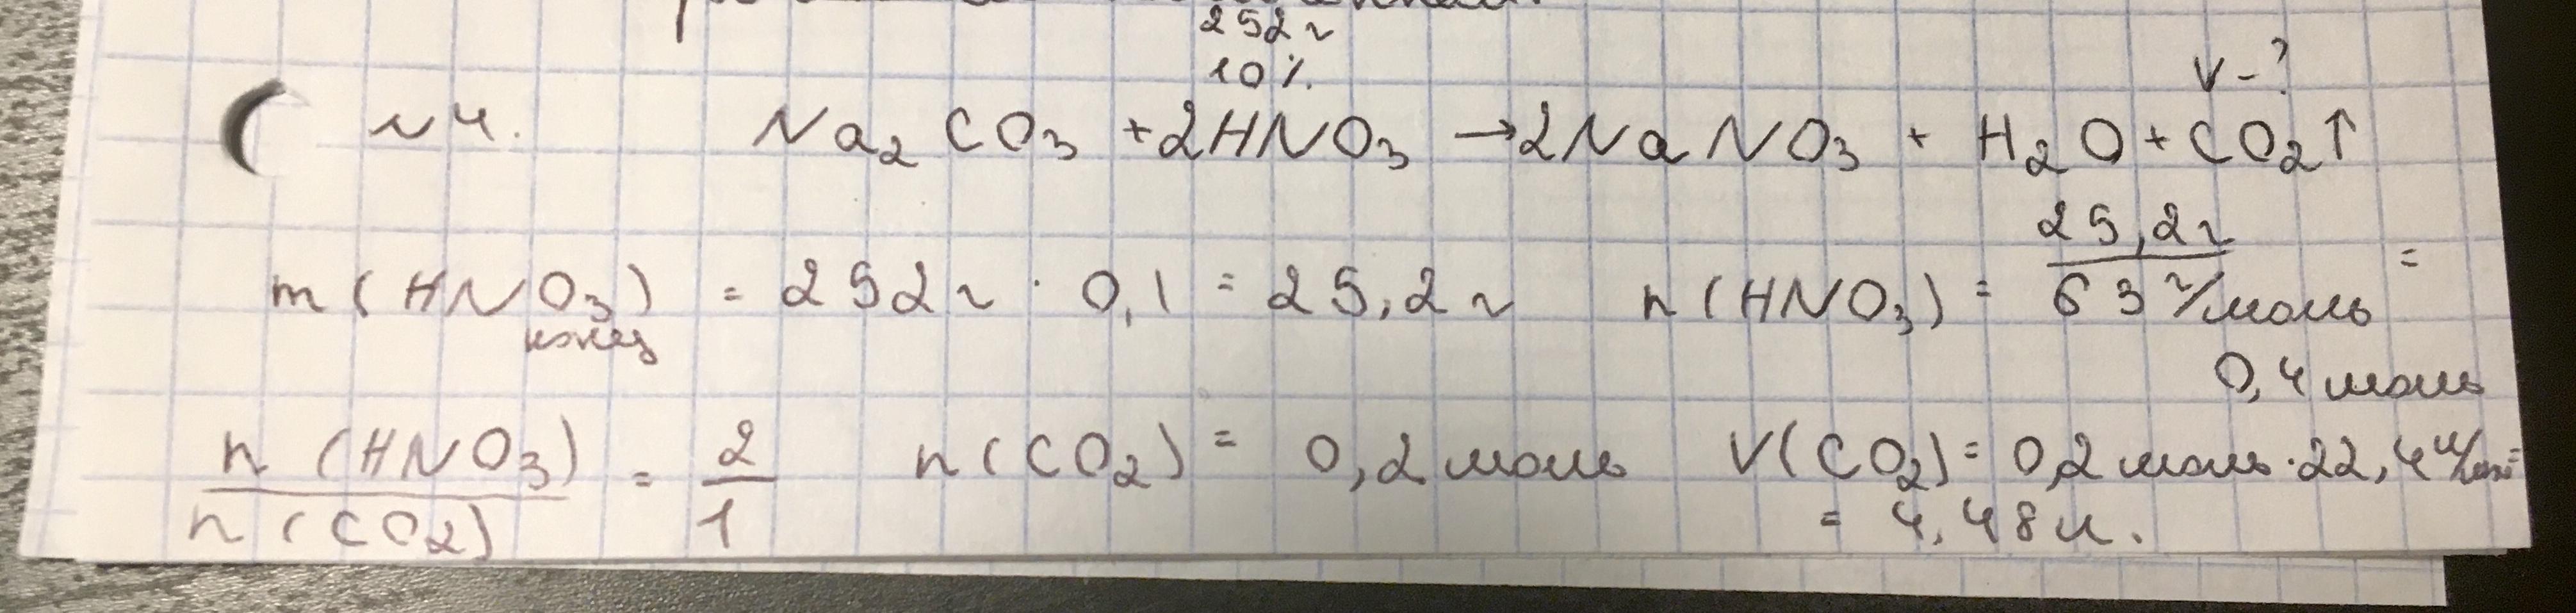 252 г
10 %
V - ?
№4. Na₂CO₃ + 2HNO₃ → 2NaNO₃ + H₂O + CO₂↑
m (HNO₃) = 252 г · 0,1 = 25,2 г n (HNO₃) = 25,2 г / 63 г/моль =
конц
0,4 моль
n (HNO₃) / n (CO₂) = 2 / 1 n (CO₂) = 0,2 моль V (CO₂) = 0,2 моль · 22,4 л/моль =
= 4,48 л.